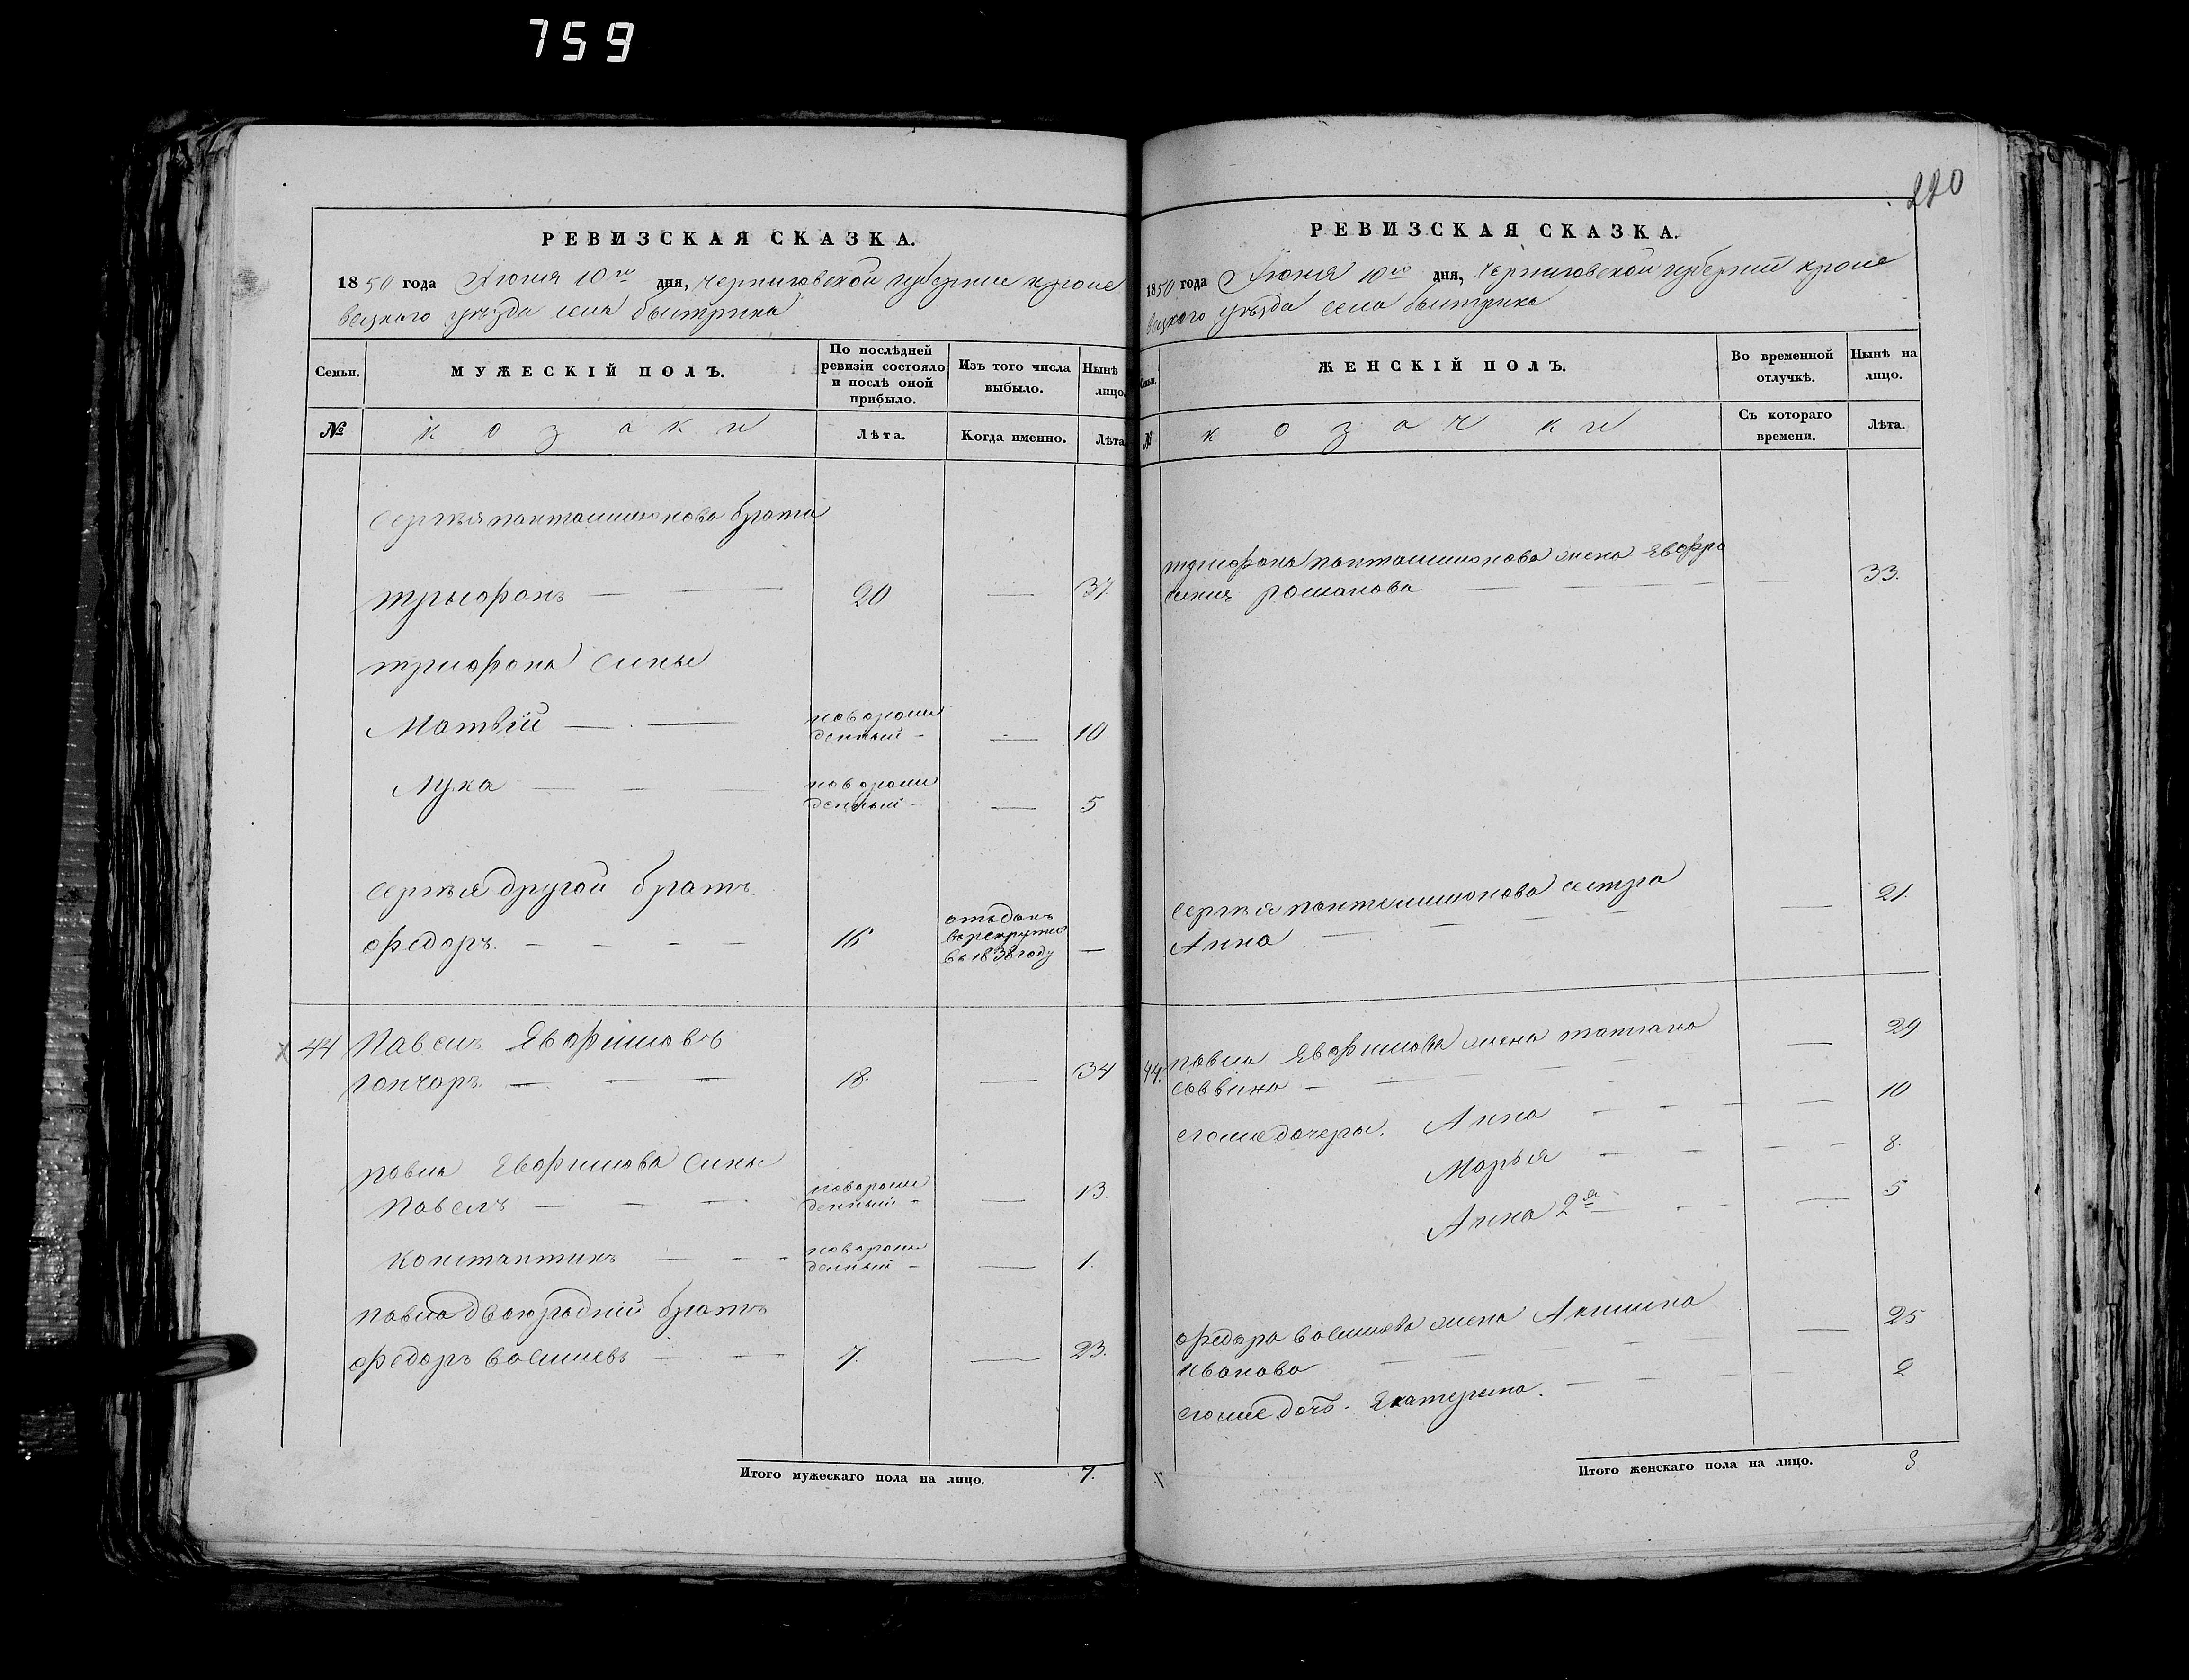 759
РЕВИЗСКАЯ СКАЗКА.
1850 года Июня 10го дня, Черниговской губернии кроле
вецкого уезда села быстрика
Семьи.
МУЖЕСКІЙ ПОЛЪ.
По послѣдней
ревизіи состояло
и послѣ оной
прибыло.
Изъ того числа
выбыло.
Нынѣ
лицо.
№
козаки
Лѣта.
Когда именно.
Лѣта
Сергѣя пантелимонова брати
трыофонъ — — 20 — 37.
трыофона сины
Матвій — — новорож
денный — — 10
Лука — — — новорож
денный — — 5
Сергѣя другой братъ
Федоръ. — — — — 16 отъданъ
въ рекруты
въ 1838 году —
44 Павелъ Евфимовъ
гончаръ. — — — 18. — 34
павла Евфимова сины
Павелъ — — — новорож
денный — — 13.
Константинъ — — новорож
денный — — 1.
павла двоюрьдній братъ
Федоръ василиевъ — — 7. — 23.
Итого мужескаго пола на лицо. 7.
220
РЕВИЗСКАЯ СКАЗКА.
1850 года Июня 10го дня, Черниговской губерніи кроле
вецкого уѣзда села быстрика
Семьи.
ЖЕНСКІЙ ПОЛЪ.
Во временной
отлучкѣ.
Нынѣ на
лицо.
№
козачки
Съ котораго
времени.
Лѣта.
трыофона пантелимонова жена Евфро
синия романова — — — — 33.
Сергѣя пантелимонова сестра
Анна — — — — 21.
44. павла Евфимова жена татиана
саввина — — — — 29
егоже дочеры. Анна — — — — 10
Марья — — — — 8.
Анна 2я — — — — 5
Федора василиева жена Акилина
Иванова — — — — 25
егоже дочь. Екатерина. — — — — 2
Итого женскаго пола на лицо. 8